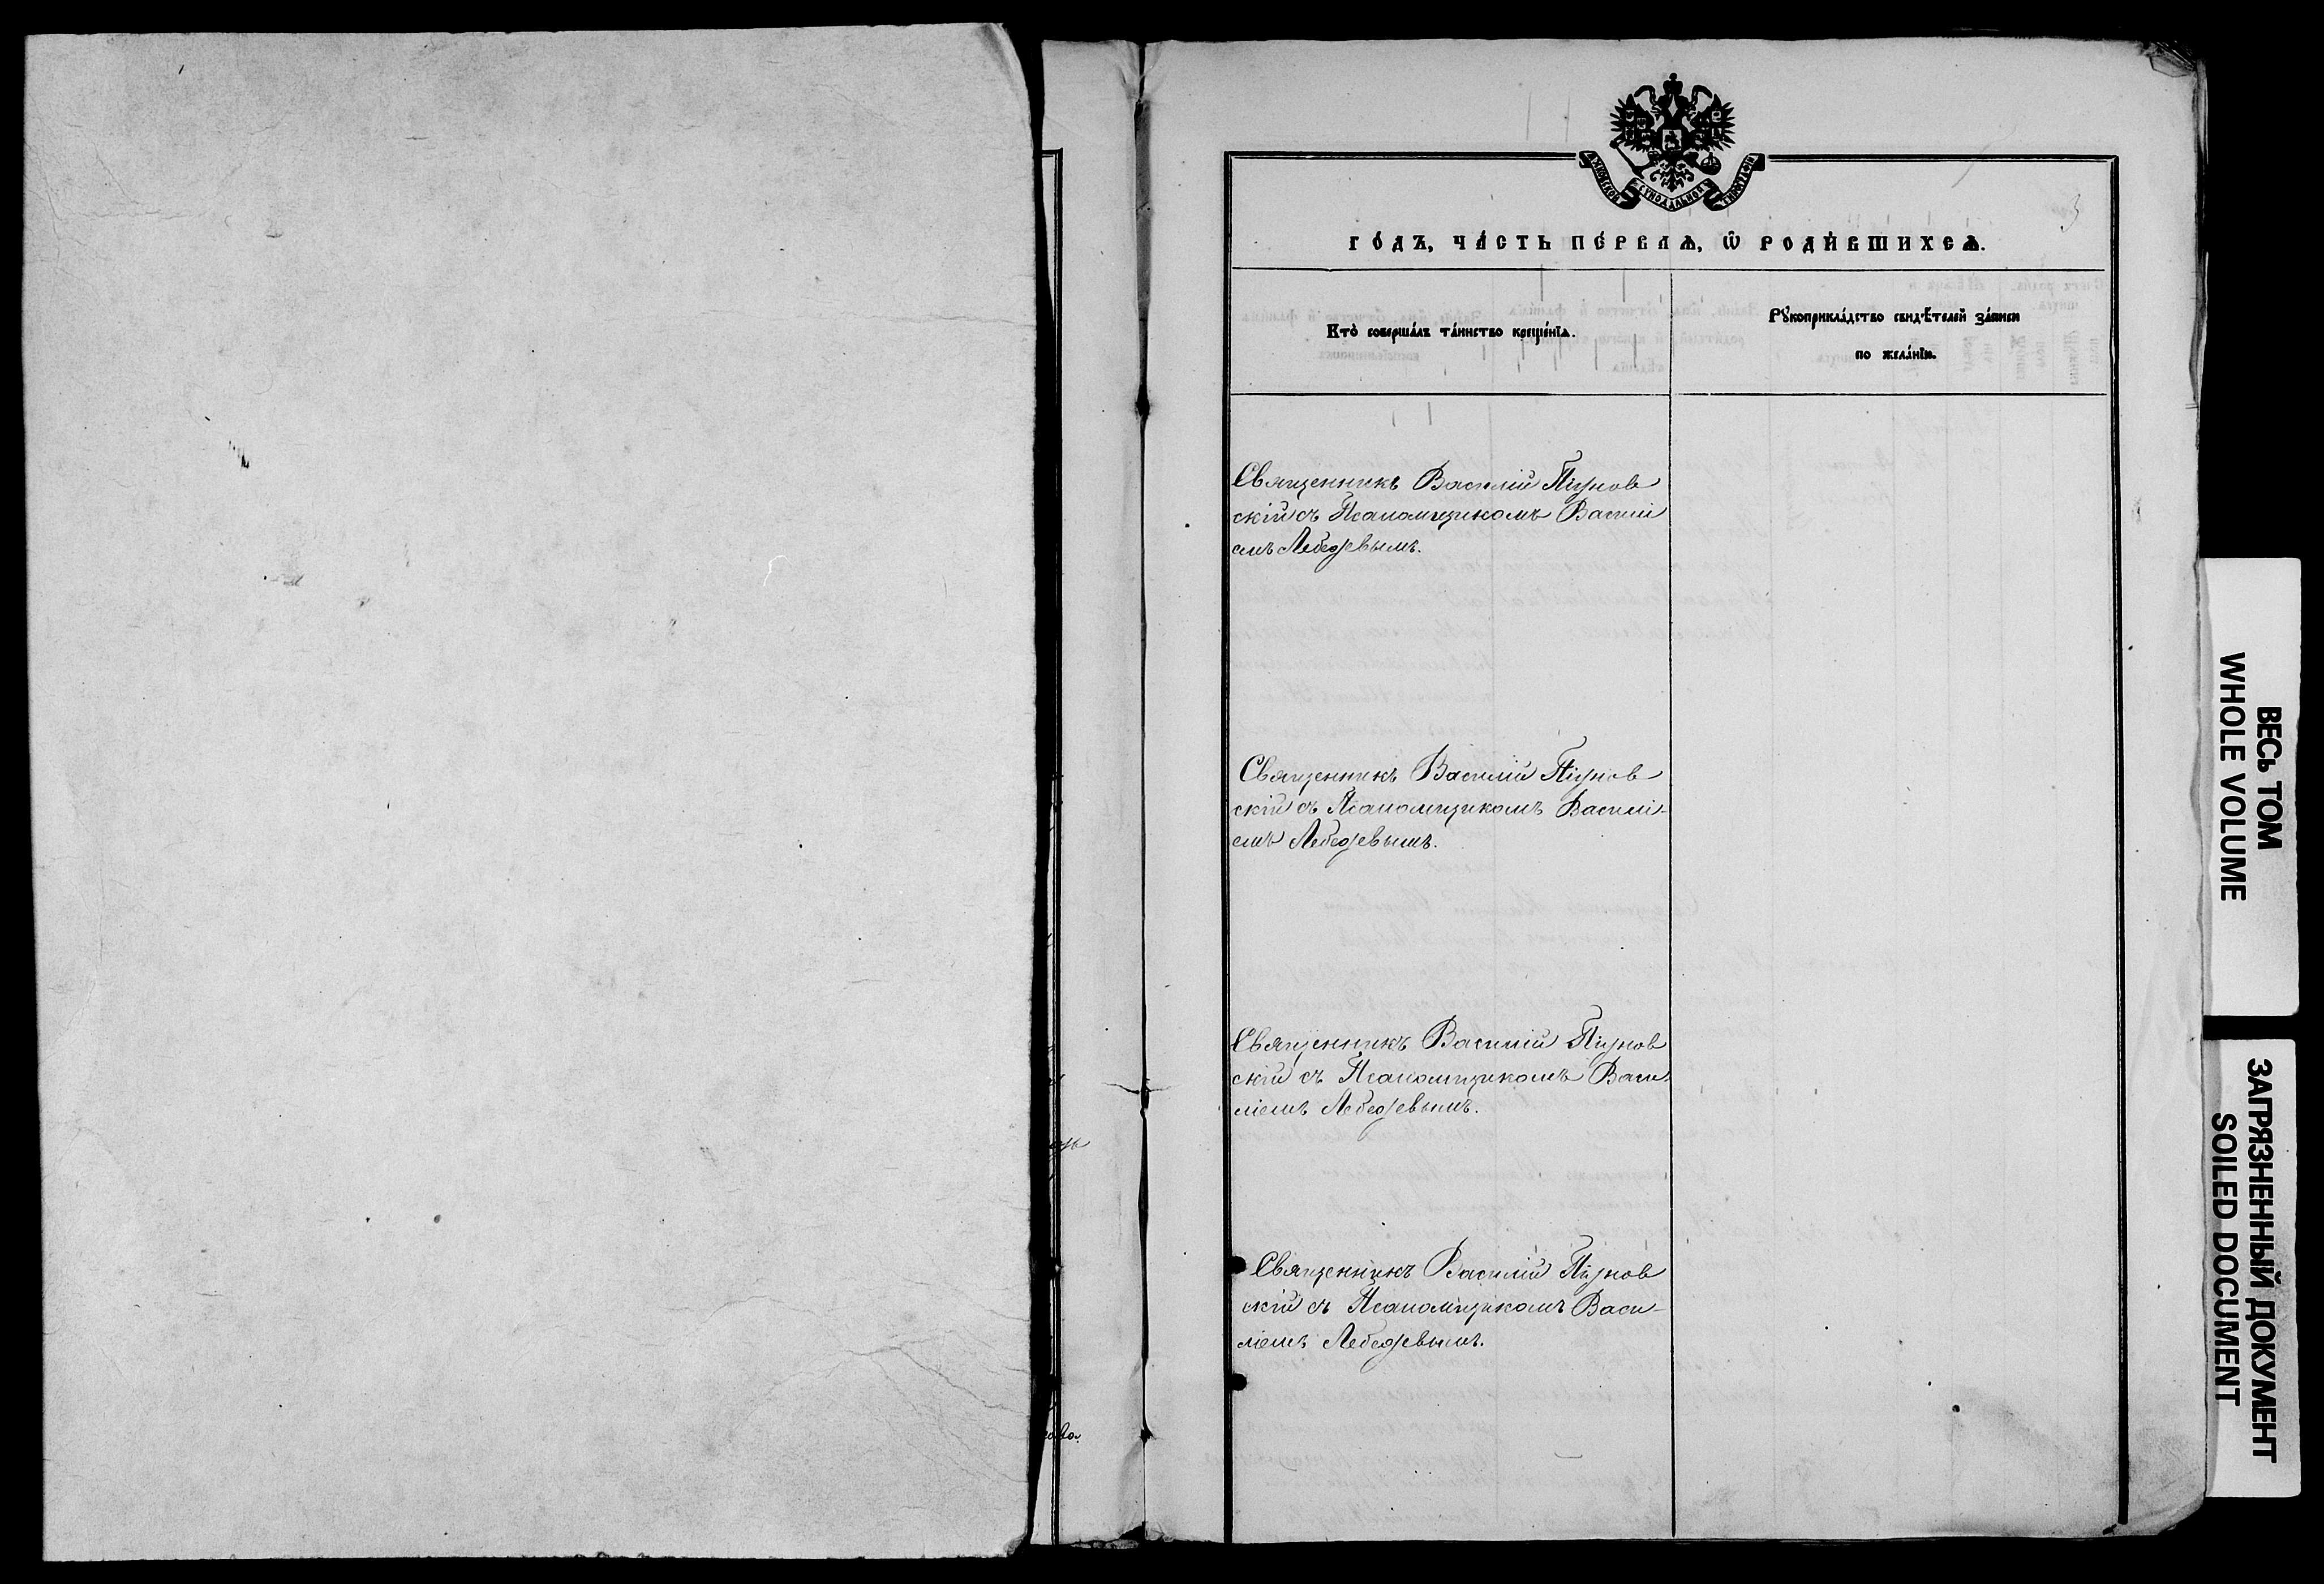 3
МОСКОВСКОЙ СѴНОДАЛЬНОЙ ТИПОГРАФІИ
ГО́ДЪ, ЧА́СТЬ ПЕ́РВАѦ, Ѡ҆ РОДИ́ВШИХСѦ.
Кто̀ соверша́лъ та́инство креще́нїѧ.
Рꙋкоприкла́дство свидѣ́телей за́писи
по жела́нїю.
Священникъ Василій Пѣунов
скій съ Псаломщикомъ Василі
емъ Лебедевымъ.
Священникъ Василій Пѣунов
скій съ Псаломщикомъ Василі-
емъ Лебедевымъ.
Священникъ Василій Пѣунов
скій съ Псаломщикомъ Васи-
ліемъ Лебедевымъ.
Священникъ Василій Пѣунов
скій съ Псаломщикомъ Васи-
ліемъ Лебедевымъ.
ВЕСЬ ТОМ
WHOLE VOLUME
ЗАГРЯЗНЕННЫЙ ДОКУМЕНТ
SOILED DOCUMENT